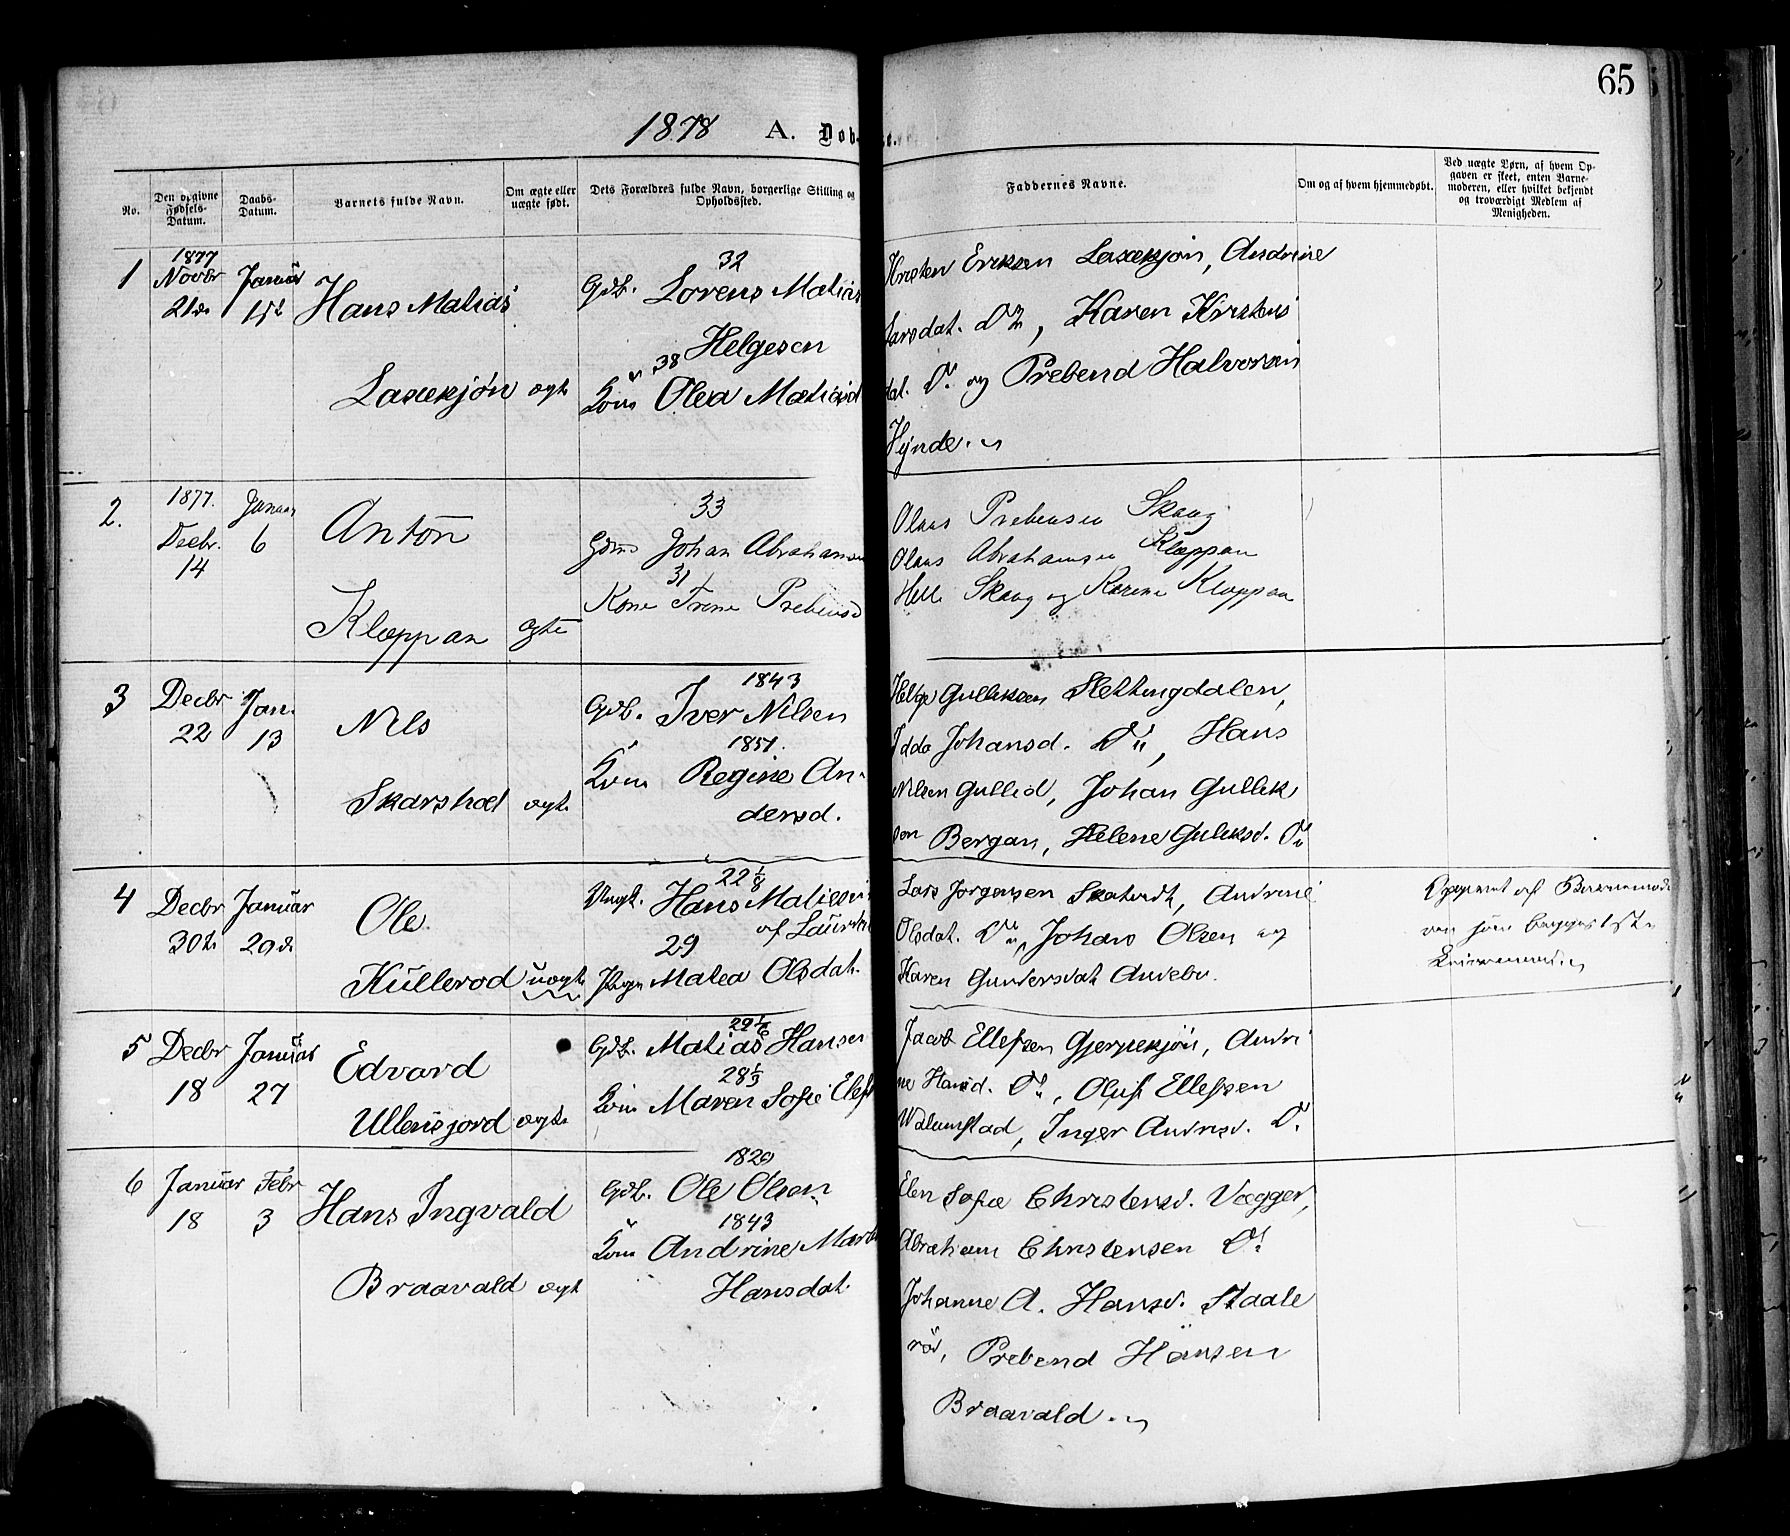 65
1878 A. Dob
No.
Den opgivne Fødsels-Datum.
Daabs-Datum.
Barnets fulde Navn.
Om ægte eller uægte født.
Dets Forældres fulde Navn, borgerlige Stilling og Opholdssted.
Faddernes Navne.
Om og af hvem hjemmedøbt.
Ved uægte Børn, af hvem Opgaven er skeet, enten Barnemoderen, eller hvilket bekjendt og troværdigt Medlem af Menigheden.
1
1877
Novbr
21de
Januar
Hans Matias
Laxekjøn
ægte
32
Gdb. Lorens Matias
Helgesen
38
Kone Olea Matiasd
Eriksen Laxekjøn, Andrine
Larsdat. Do, Karen Kristens
dat. Do. og Prebend Halvorsen
Hynde.
2.
1877.
Decbr.
14
Januar
6
Anton
Kleppan
ægte
33
Johan Abrahamsen
31
Kone Trine Prebensd
Olaus Prebensen Skaug
Olaus Abrahamsen Kleppan
Helle Skaug og Karine Kleppan
3
Decbr
22
Jan.
13
Nils
Skarsholt
ægte
1843
Gdb. Iver Nilsen
1851.
Kone Regine An-
dersd.
Helge Gulliksen Slettingdalen,
Johansd. Do, Hans
Nilsen Gullid, Johan Gullik
sen Bergan, Helene Guliksd. Do
4
Decbr
30te
Januar
20de
Ole
Kullerod
uægte
22 1/8
Ungk. Hans Matiesen
af
29
Pige Malea Olsdat.
Lars Jorgensen, Andrine
Olsdat. Do, Johans Olsen og
Karen Gundersdat Andebu.
Opgivet af Barnemode
ren
5
Decbr
18
Januar
27
Edvard
Ullensjord
ægte
29 1/6
Gdb. Matias Hansen
28 1/3
Kone Maren Sofie Elefs
Jacob Ellefsen Gjerpekjøn, Andri
ne Hansd. Do, Oluf Ellefsen
Inger Andresd. Do.
6
Januar
18
Febr
3
Hans Ingvald
Braavald
ægte
1820
Gdb. Ole Olsen
1843
Kone Andrine Marti
Hansdat.
Elen Sofie Christensd. Vegger,
Abraham Christensen Do
Johanne A. Hansd. Staale
rød, Prebend Hansen
Braavald.